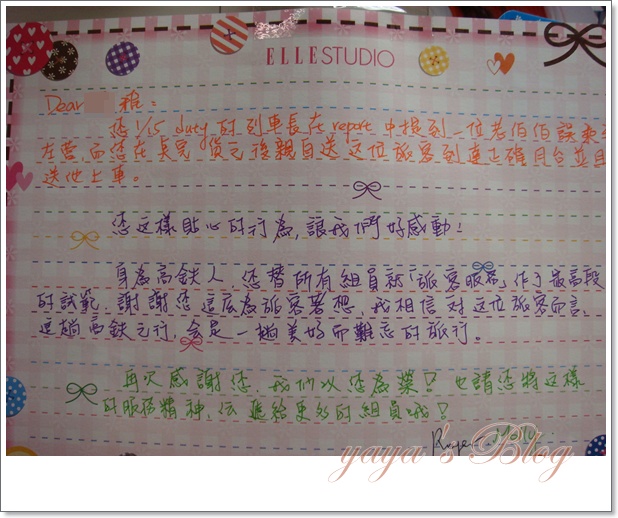 ELLE STUDIO
Dear 雅:
您 1/15 duty 的列車長在 report 中提到一位老伯伯誤乘至
左營,而您在 後親自送這位旅客到達正確月台並且
送他上車。
您這樣貼心的行為,讓我們好感動!
身為高鐵人 您替所有組員就「旅客服務」作了最高段
的試範,謝謝您這麼為旅客著想,我相信對這位旅客而言,
這趟高鐵之行,會是一趟美好而難忘的旅行。
再次感謝您,我們以您為榮!也請您將這樣
的服務精神,傳遞給更多的組員哦!
yaya's Blog